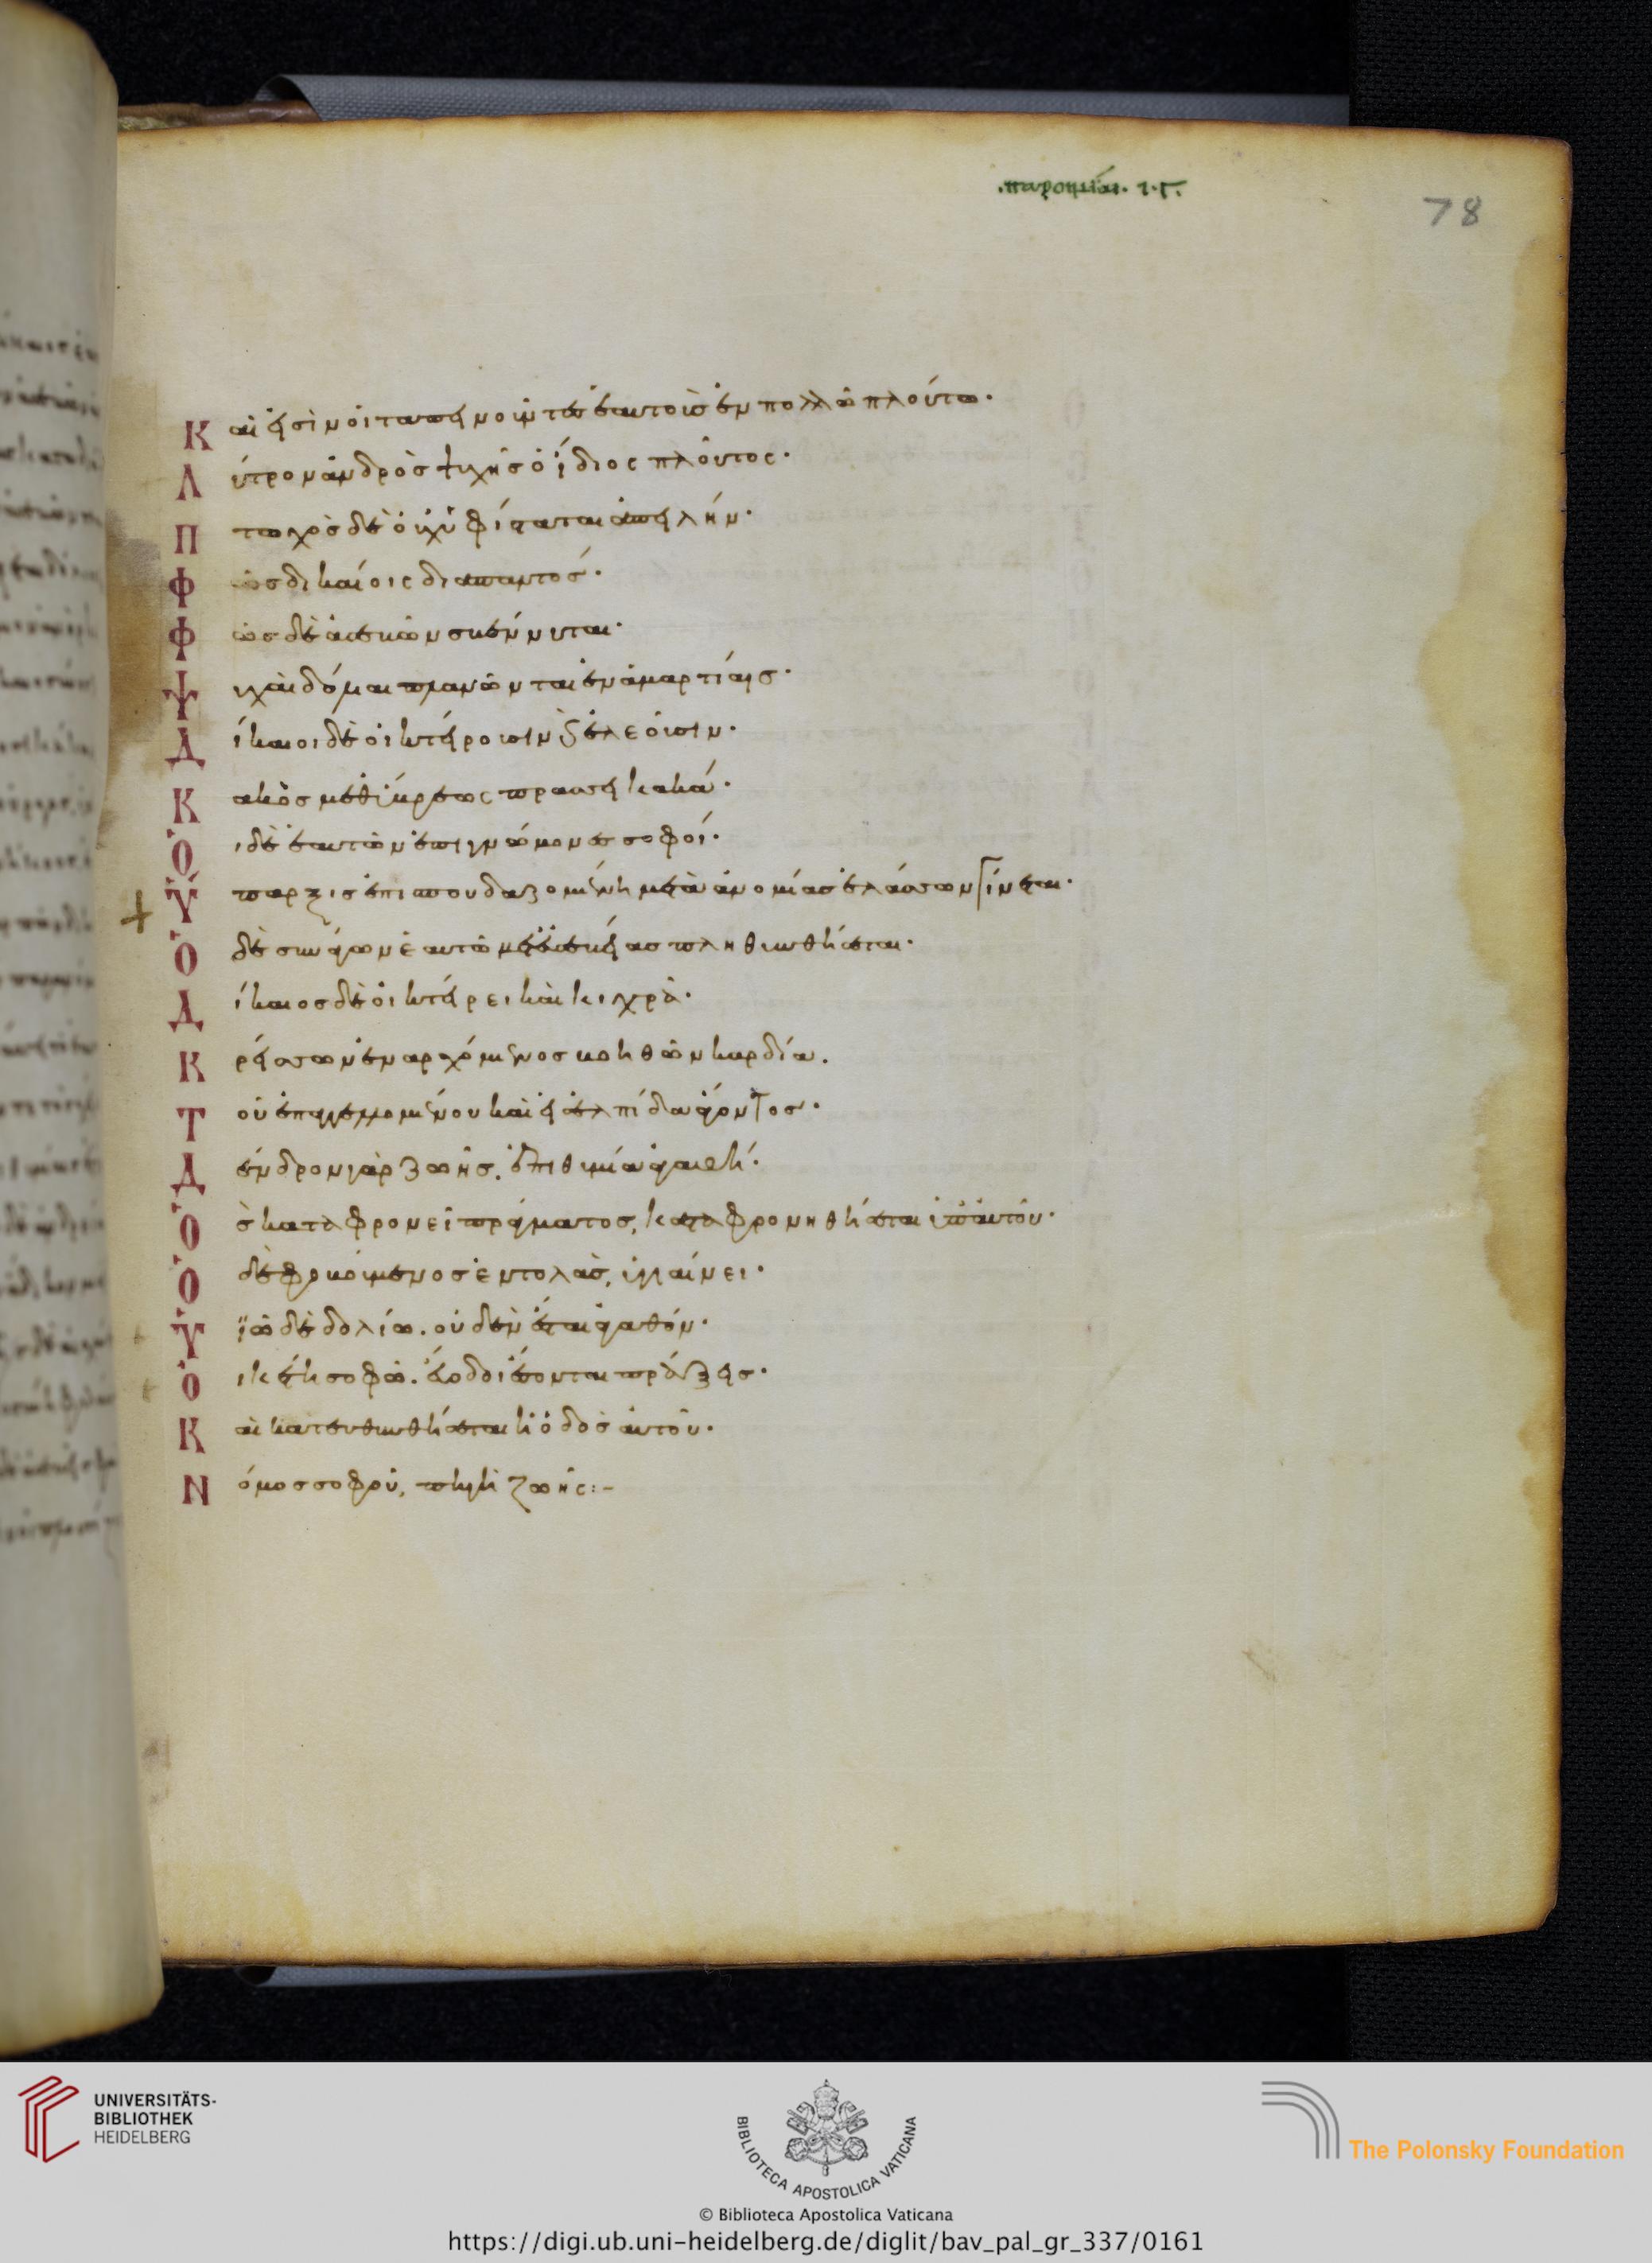 .παροιμίαι. ι.γ.
78
Καὶ εἰσὶν οἱ ταπεινοῦντες ἑαυτοὺς ἐν πολλῶ πλούτω·
Λύτρον ἀνδρὸς ψυχῆς ὁ ἴδιος πλοῦτος·
Πτωχὸς δὲ οὐχ ὑφίσταται ἀπειλήν·
Φῶς δικαίοις διαπαντός·
Φῶς δὲ ἀσεβῶν σβέννυται·
Ψυχαὶ δόλιαι πλανῶνται ἐν ἁμαρτίαις·
Δίκαιοι δὲ οἰκτείρουσιν ϗ ἐλεοῦσιν·
Κακὸς μεθ ὕβρεως πράσσει κακά·
Οἱ δὲ ἑαυτῶν ἐπιγνώμονες σοφοί·
Ὕπαρξις ἐπισπουδαζομένη μετὰ ἀνομίας ἐλάσσων γίνεται·
Ὁ δὲ συνάγων ἑαυτῶ μετ εὐσεβείας πληθυνθήσεται·
Δίκαιος δὲ οἰκτείρει καὶ κιχρᾶ·
Κρείσσων ἐναρχόμενος βοηθῶν καρδία.
Τοῦ ἐπαγγελλομένου καὶ εἰς ἐλπίδα ἄγοντος·
Δένδρον γὰρ ζωῆς, ἐπιθυμία ἀγαθή·
Ὃς καταφρονεῖ πράγματος, καταφρονηθήσεται ὑπ αὐτοῦ·
Ὁ δὲ φοβούμενος ἐντολὰς, ὑγιαίνει·
Υἱῶ δὲ δολίω. οὐδὲν ἔσται ἀγαθόν·
Οἰκέτη σοφῶ. εὔοδοι ἔσονται πράξεις·
Καὶ κατευθυνθήσεται ἡ ὁδὸς αὐτοῦ·
Νόμος σοφοῦ, πηγὴ ζωῆς:-
UNIVERSITÄTS-
BIBLIOTHEK
HEIDELBERG
BIBLIOTECA APOSTOLICA VATICANA
The Polonsky Foundation
© Biblioteca Apostolica Vaticana
https://digi.ub.uni-heidelberg.de/diglit/bav_pal_gr_337/0161